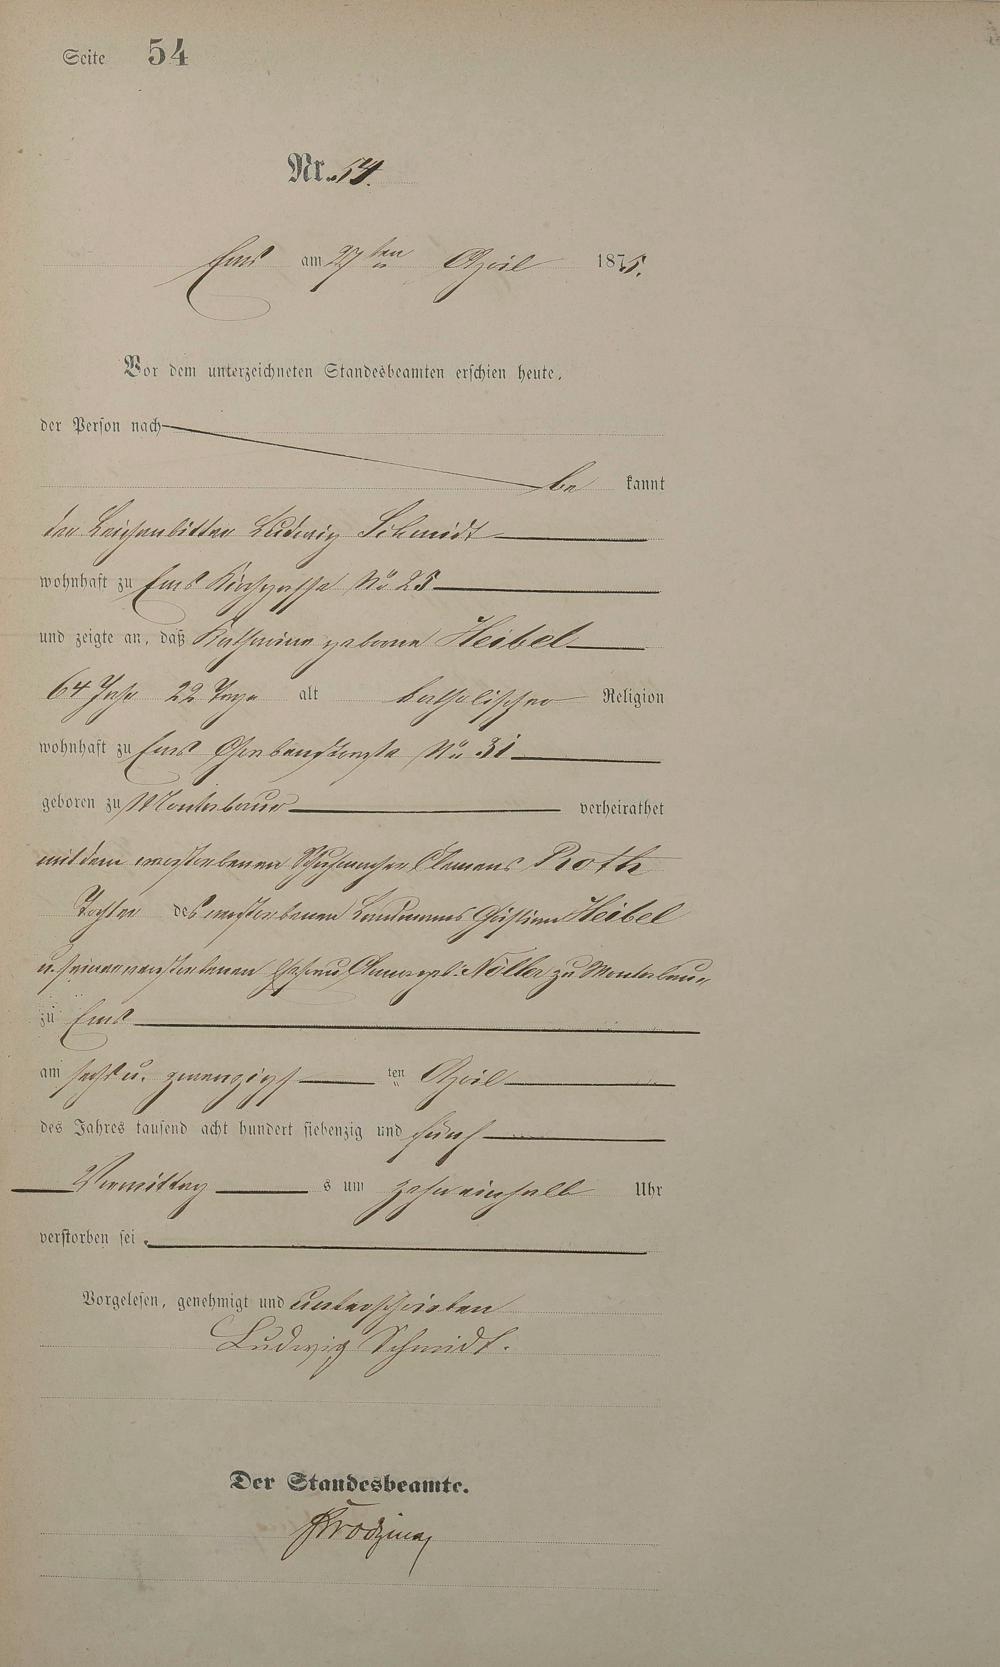 Seite 54
Nr. 54.
Ems am 27ten April 1875.
Vor dem unterzeichneten Standesbeamten erschien heute,
der Person nach
be kannt
der Leichenbitter Ludwig Schmidt
wohnhaft zu Ems Kirchgasse No 25
und zeigte an, daß Katharina geborne Heibel
64 Jahr 22 Tage alt katholischer Religion
wohnhaft zu Ems No 31
geboren zu Montabaur verheirathet
mit dem verstorbenen Schuhmacher Clemens Roth
Tochter des verstorbenen Landmanns Christian Heibel
u. seiner verstorbenen Ehefrau Anna geb. Nöller zu Montabaur
zu Ems
am sechs u. zwanzigst ten April
des Jahres tausend acht hundert siebenzig und fünf
Vormittag s um zehneinhalb Uhr
verstorben sei.
Vorgelesen, genehmigt und unterschrieben
Ludwig Schmidt.
Der Standesbeamte.